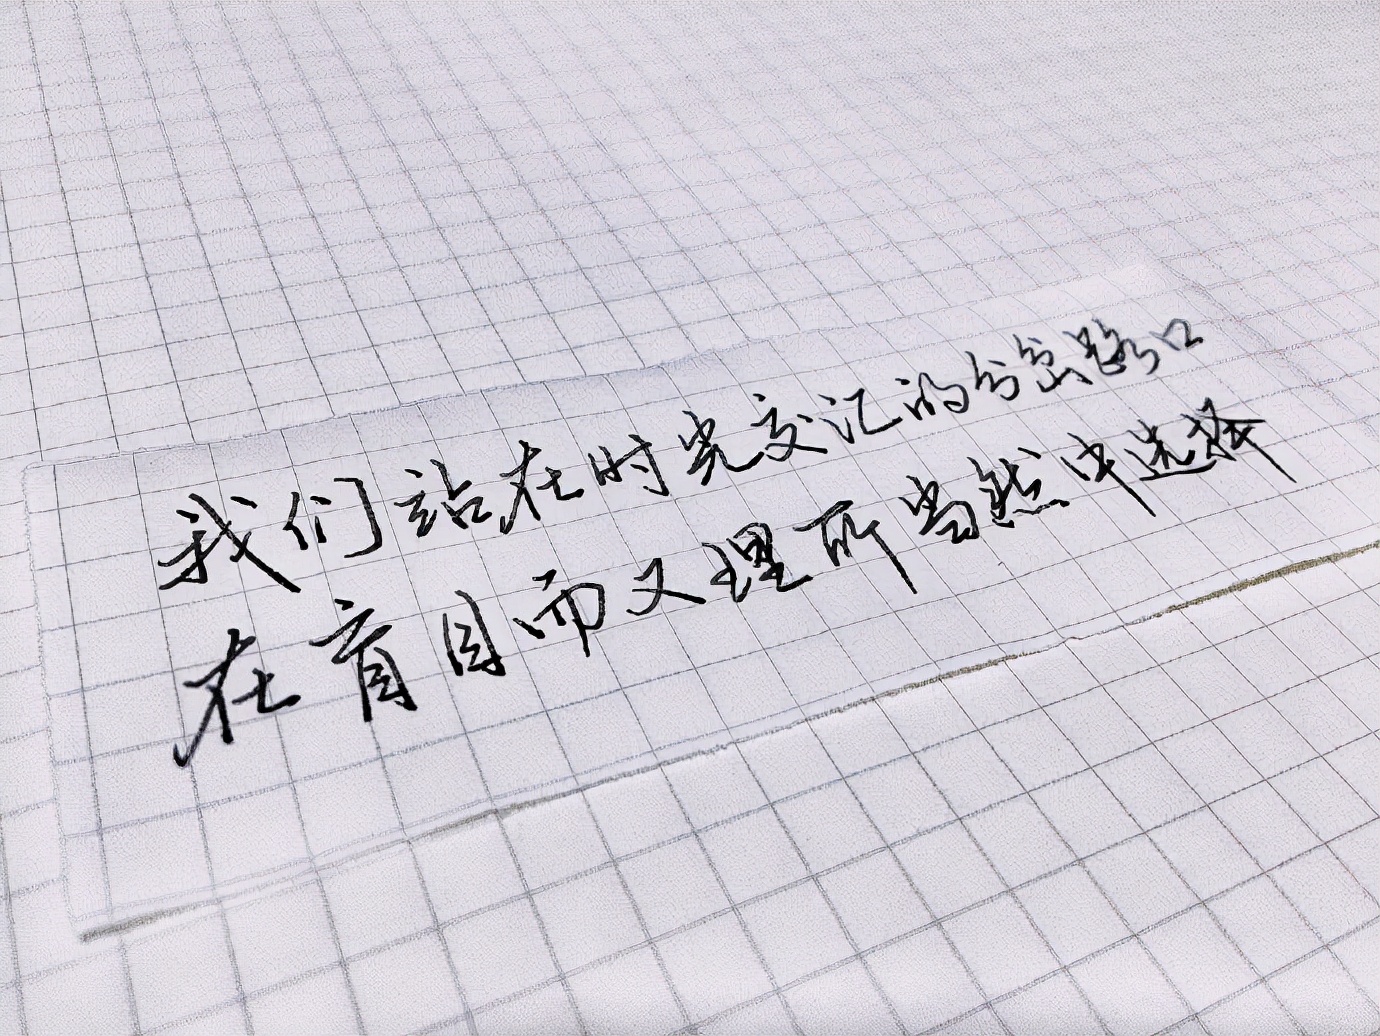 我们站在时光交汇的分岔路口
在盲目而又理所当然中选择